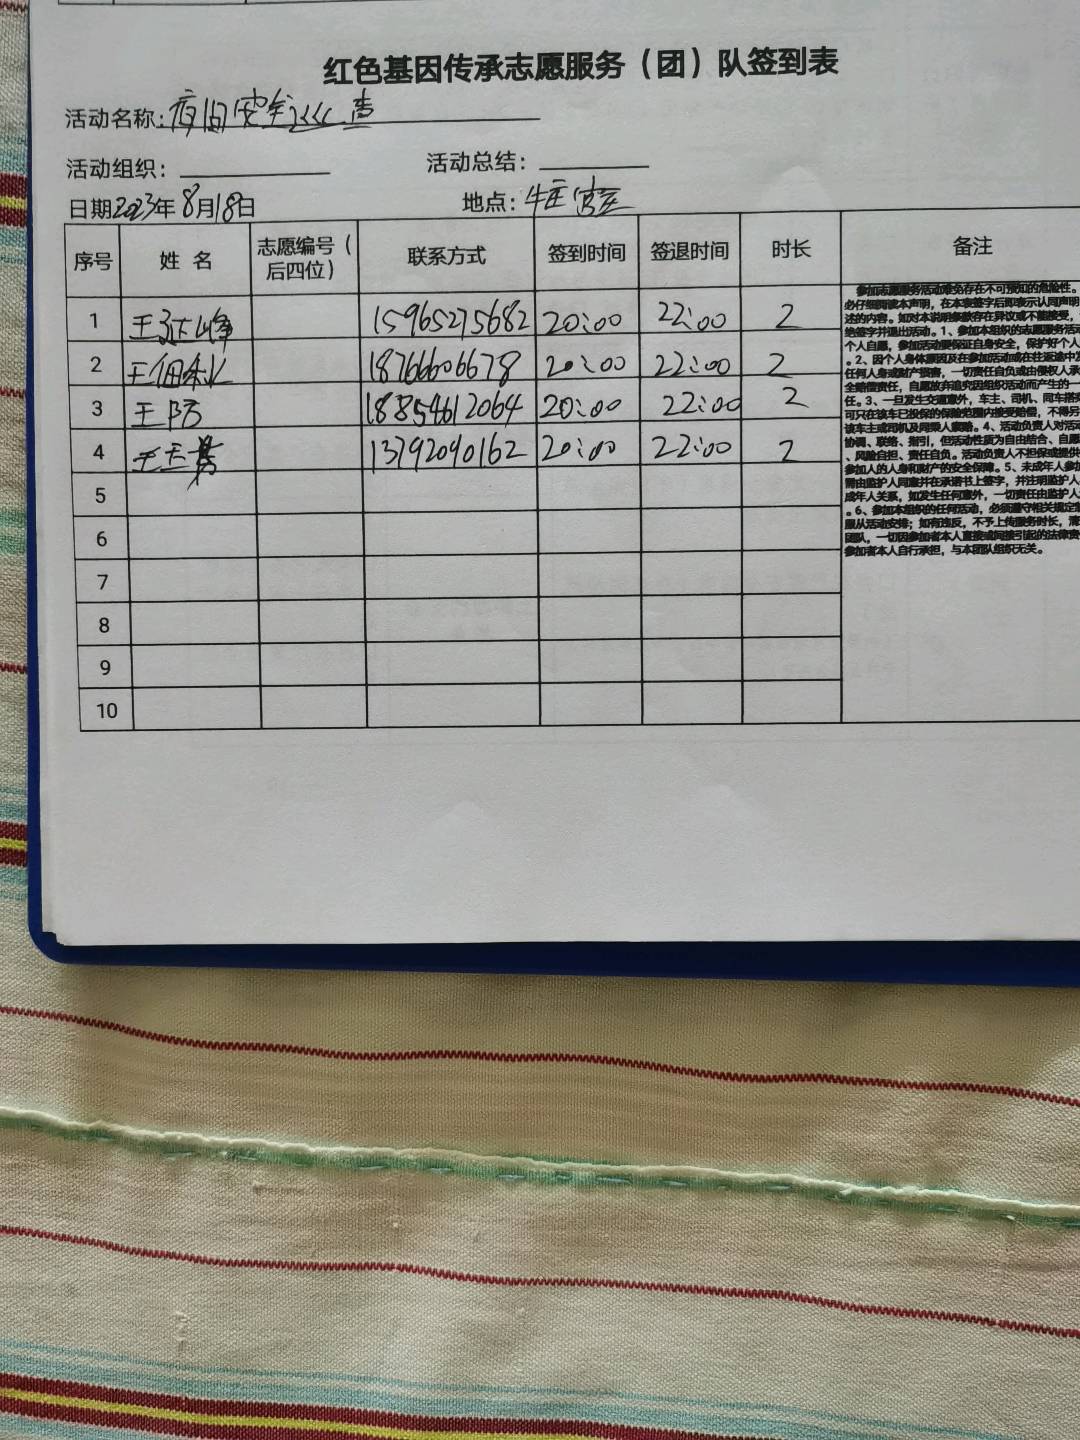 红色基因传承志愿服务（团）队签到表
活动名称：夜间安全巡查
活动组织：
活动总结：
日期2023年8月18日
地点：
序号 姓 名 志愿编号（后四位） 联系方式 签到时间 签退时间 时长 备注
1 15965275682 20:00 22:00 2
2 18766606678 20:00 22:00 2
3 王防 18854612064 20:00 22:00 2
4 13792090162 20:00 22:00 2
5
6
7
8
9
10
参加志愿服务活动难免存在不可预知的危险性。
必仔细阅读本声明，在本表签字后即表示认同声明
述的内容。如对本说明条款存在异议或不能接受，
绝签字并退出活动。1、参加本组织的志愿服务活动
个人自愿，参加活动要保证自身安全，保护好个人
。2、因个人身体原因及在参加活动或在往返途中发
任何人身或财产损害，一切责任自负或由侵权人承
全赔偿责任，自愿放弃追究因组织活动而产生的一
任。3、一旦发生交通意外，车主、司机、同车搭乘
可只在该车已投保的保险范围内接受赔偿，不得另
该车主或司机及同乘人索赔。4、活动负责人对活动
协调、联络、指引，但活动性质为自由结合、自愿
、风险自担、责任自负。活动负责人不担保或提供
参加人的人身和财产的安全保障。5、未成年人参加
需由监护人同意并在承诺书上签字，并注明监护人
成年人关系，如发生任何意外，一切责任由监护人
。6、参加本组织的任何活动，必须遵守相关规定
服从活动安排；如有违反，不予上传服务时长，清
团队，一切因参加者本人直接或间接引起的法律责
参加者本人自行承担，与本团队组织无关。